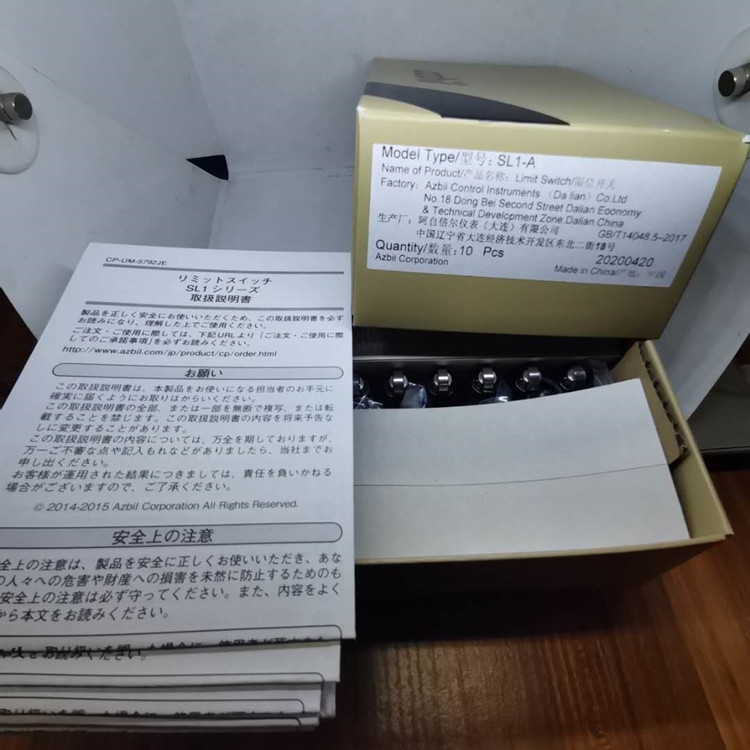 Model Type/型号: SL1-A
Name of Product/产品名称: Limit Switch/限位开关
Factory: Azbil Control Instruments (Da lian) Co.Ltd
No.18 Dong Bei Second Street Dalian Eoonomy
& Technical Development Zone Dalian.China
生产厂: 阿自倍尔仪表(大连)有限公司 GB/T14048.5-2017
中国辽宁省大连经济技术开发区东北二街18号
Quantity/数量: 10 Pcs 20200420
Azbil Corporation Made in China/产地: 中国
CP-UM-5792JE
リミットスイッチ
SL1 シリーズ
取扱説明書
製品を正しく安全にお使いいただくため、この取扱説明書を必ず
お読みになり、理解した上でご使用ください。
ご注文・ご使用に際しては、下記URLより「ご注文・ご使用に際
してのご承諾事項」を必ずお読みください。
http://www.azbil.com/jp/product/cp/order.html
お願い
この取扱説明書は、本製品をお使いになる担当者のお手元に
確実に届くようにお取りはからいください。
この取扱説明書の全部、または一部を無断で複写、または転
載することを禁じます。この取扱説明書の内容を将来予告な
しに変更することがあります。
この取扱説明書の内容については、万全を期しておりますが、
万一ご不審な点や記入もれなどがありましたら、当社までお
申し出ください。
お客様が運用された結果につきましては、責任を負いかねる
場合がございますので、ご了承ください。
© 2014-2015 Azbil Corporation All Rights Reserved.
安全上の注意
全上の注意は、製品を安全に正しくお使いいただき、あな
の人々への危害や財産への損害を未然に防止するためのも
安全上の注意は必ず守ってください。また、内容をよく
から本文をお読みください。